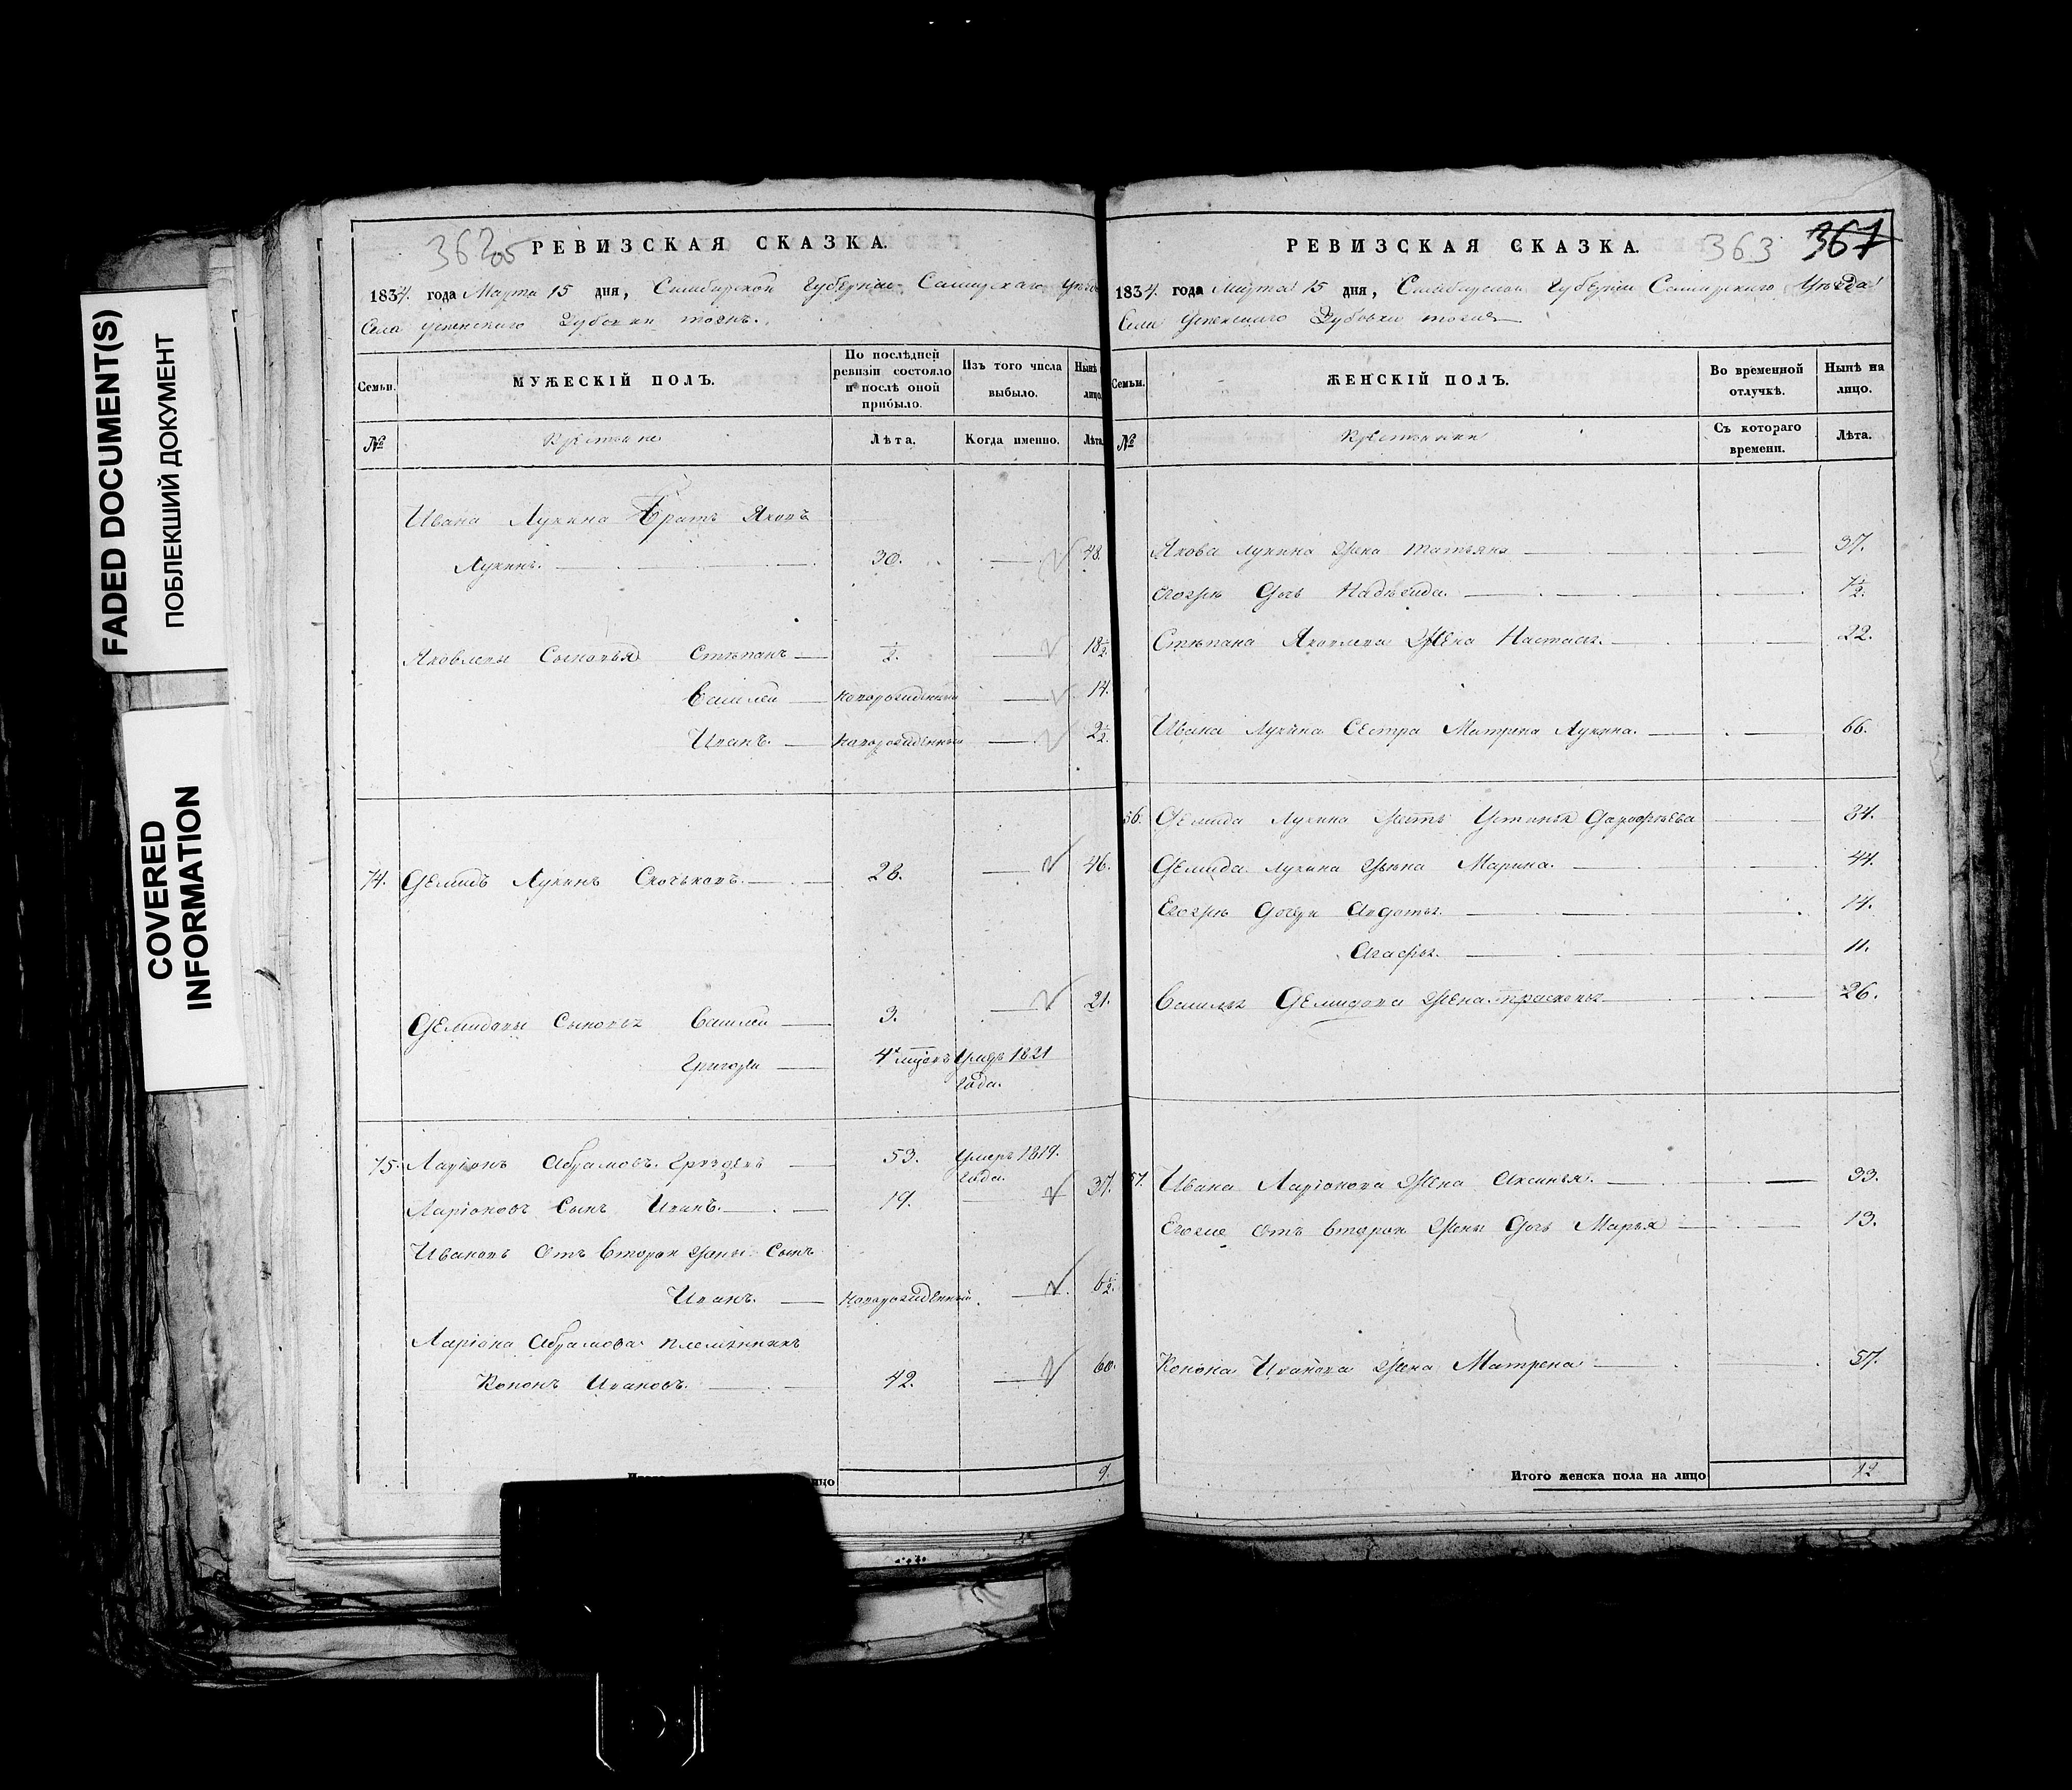 FADED DOCUMENT(S)
ПОБЛЕКШИЙ ДОКУМЕНТ
COVERED
INFORMATION
362
РЕВИЗСКАЯ СКАЗКА.
1834. года Марта 15 дня, Симбирской Губернии Самарскаго
Села Успенскаго Зубовки тожъ.
Семьи. МУЖЕСКІЙ ПОЛЪ. По послѣдней ревизіи состояло и послѣ оной прибыло. Изъ того числа выбыло. Нынѣ лицо.
№ Крестьяне Лѣта. Когда именно. Лѣта.
Ивана Лукина Братъ Яковъ
Лукинъ. 30. 48.
Яковлевы Сыновья Степанъ ½. 18½
Василей новорожденный 14.
Иванъ. новорожденный 2½.
74. Демидъ Лукинъ 28. 46.
Демидовы Сыновья Василей 3. 21.
Григорей 4 умре 1821
года.
75. Ларіонъ Абрамовъ 53. умеръ 1819.
года.
Ларіоновъ Сынъ Иванъ. 19. 37.
Ивановъ отъ второй жены Сынъ
Иванъ. новорожденный 6½.
Ларіона Абрамова племянникъ
Кононъ Ивановъ. 42. 60.
9.
363 367
РЕВИЗСКАЯ СКАЗКА.
1834. года Марта 15 дня, Симбирской Губернии Самарскаго Уезда
Села Успенскаго Зубовки тожъ
Семьи. ЖЕНСКІЙ ПОЛЪ. Во временной отлучкѣ. Нынѣ на лицо.
№ Крестьянки Съ котораго времени. Лѣта.
Якова Лукина жена Татьяна 37.
Дочь Надежда. 7½.
Степана Яковлева Жена Настасья. 22.
Ивана Лукина Сестра Матрена Лукина. 66.
Демида Лукина мать Устинья Дарофеева 84.
Демида Лукина жена Марина. 44.
Дочери Авдотья. 14.
Агафья. 11.
Василья Демидова жена Прасковья 26.
57. Ивана Ларіонова жена Аксинья. 33.
отъ второй жены Дочь Марья 13.
Конона Иванова жена Матрена 57.
Итого женска пола на лицо 12